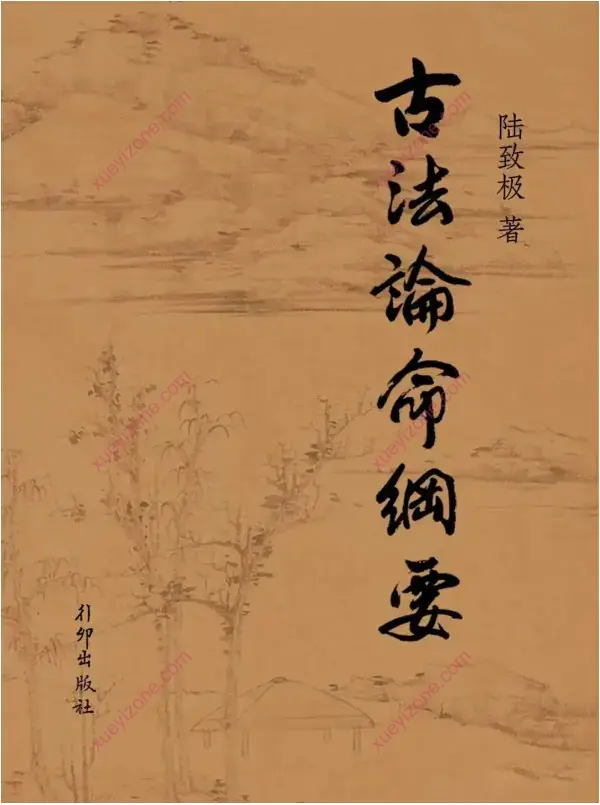 陆致极 著
古法論命綱要
行卯出版社
xueyizone.com
xueyizone.com
xueyizone.com
xueyizone.com
xueyizone.com
xueyizone.com